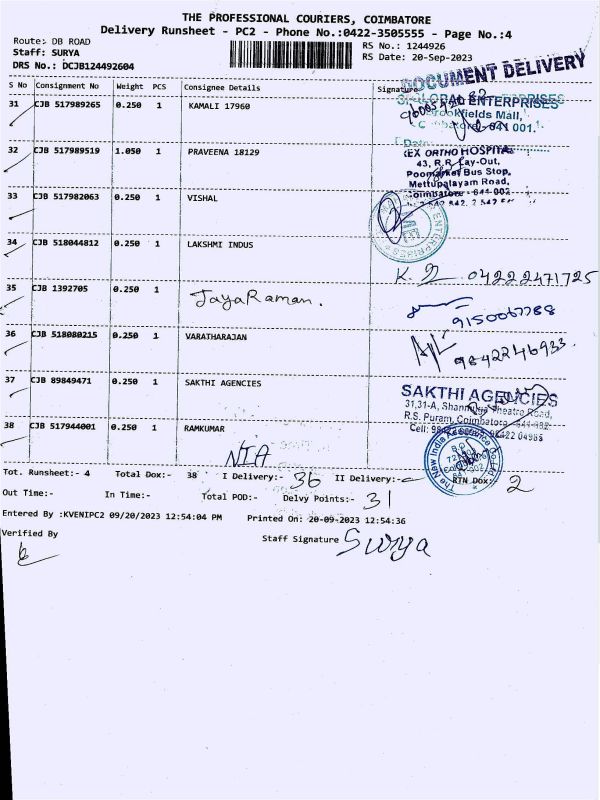 THE PROFESSIONAL COURIERS, COIMBATORE
Delivery Runsheet - PC2 - Phone No.:0422-3505555 - Page No.:4
Route: DB ROAD
Staff: SURYA
DRS No.: DCJB124492604
RS No.: 1244926
RS Date: 20-Sep-2023
S No Consignment No Weight PCS Consignee Details Signature
DOCUMENT DELIVERY
31 CJB 517989265 0.250 1 KAMALI 17960
GLOBAL ENTERPRISES
Brookfields Mall,
641 001.
32 CJB 517989519 1.050 1 PRAVEENA 18129
ORTHO HOSPITAL
43, R.R. Lay-Out,
Poomarket Bus Stop,
Mettupalayam Road,
Coimbatore - 641 002
33 CJB 517982063 0.250 1 VISHAL
ENTERPRISES
34 CJB 518044812 0.250 1 LAKSHMI INDUS
04222471725
35 CJB 1392705 0.250 1 JayaRaman.
9150067788
36 CJB 518080215 0.250 1 VARATHARAJAN
9842246933.
37 CJB 89849471 0.250 1 SAKTHI AGENCIES
SAKTHI AGENCIES
31,31-A, Shanmuga Theatre Road,
R.S. Puram, Coimbatore - 641 002
Cell:
38 CJB 517944001 0.250 1 RAMKUMAR
NIA
The New India Assurance Co. Ltd
Tot. Runsheet:- 4 Total Dox:- 38 I Delivery:- 36 II Delivery:- RTN Dox:- 2
Out Time:- In Time:- Total POD:- Delvy Points:- 31
Entered By :KVENIPC2 09/20/2023 12:54:04 PM Printed On: 20-09-2023 12:54:36
Verified By
Staff Signature Surya